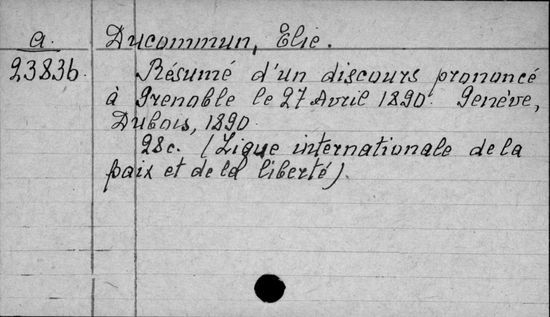 a. Ducommun, Elie.
23836. Résumé d'un discours prononcé
à Grenoble le 27 Avril 1890. Genève,
Dubois, 1890.
28c. (Ligue internationale de la
paix et de la liberté).